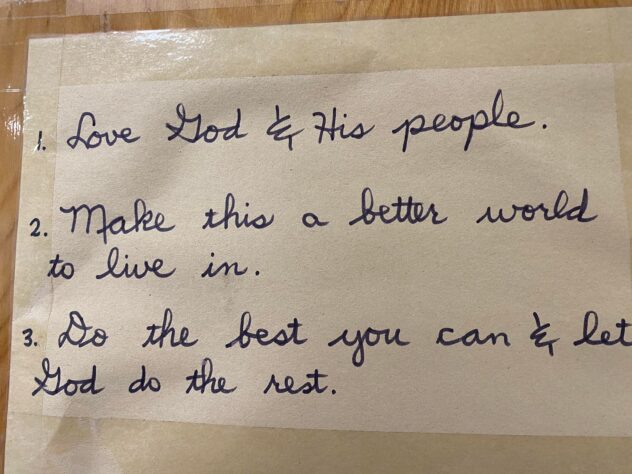 1. Love God & His people.
2. Make this a better world
to live in.
3. Do the best you can & let
God do the rest.